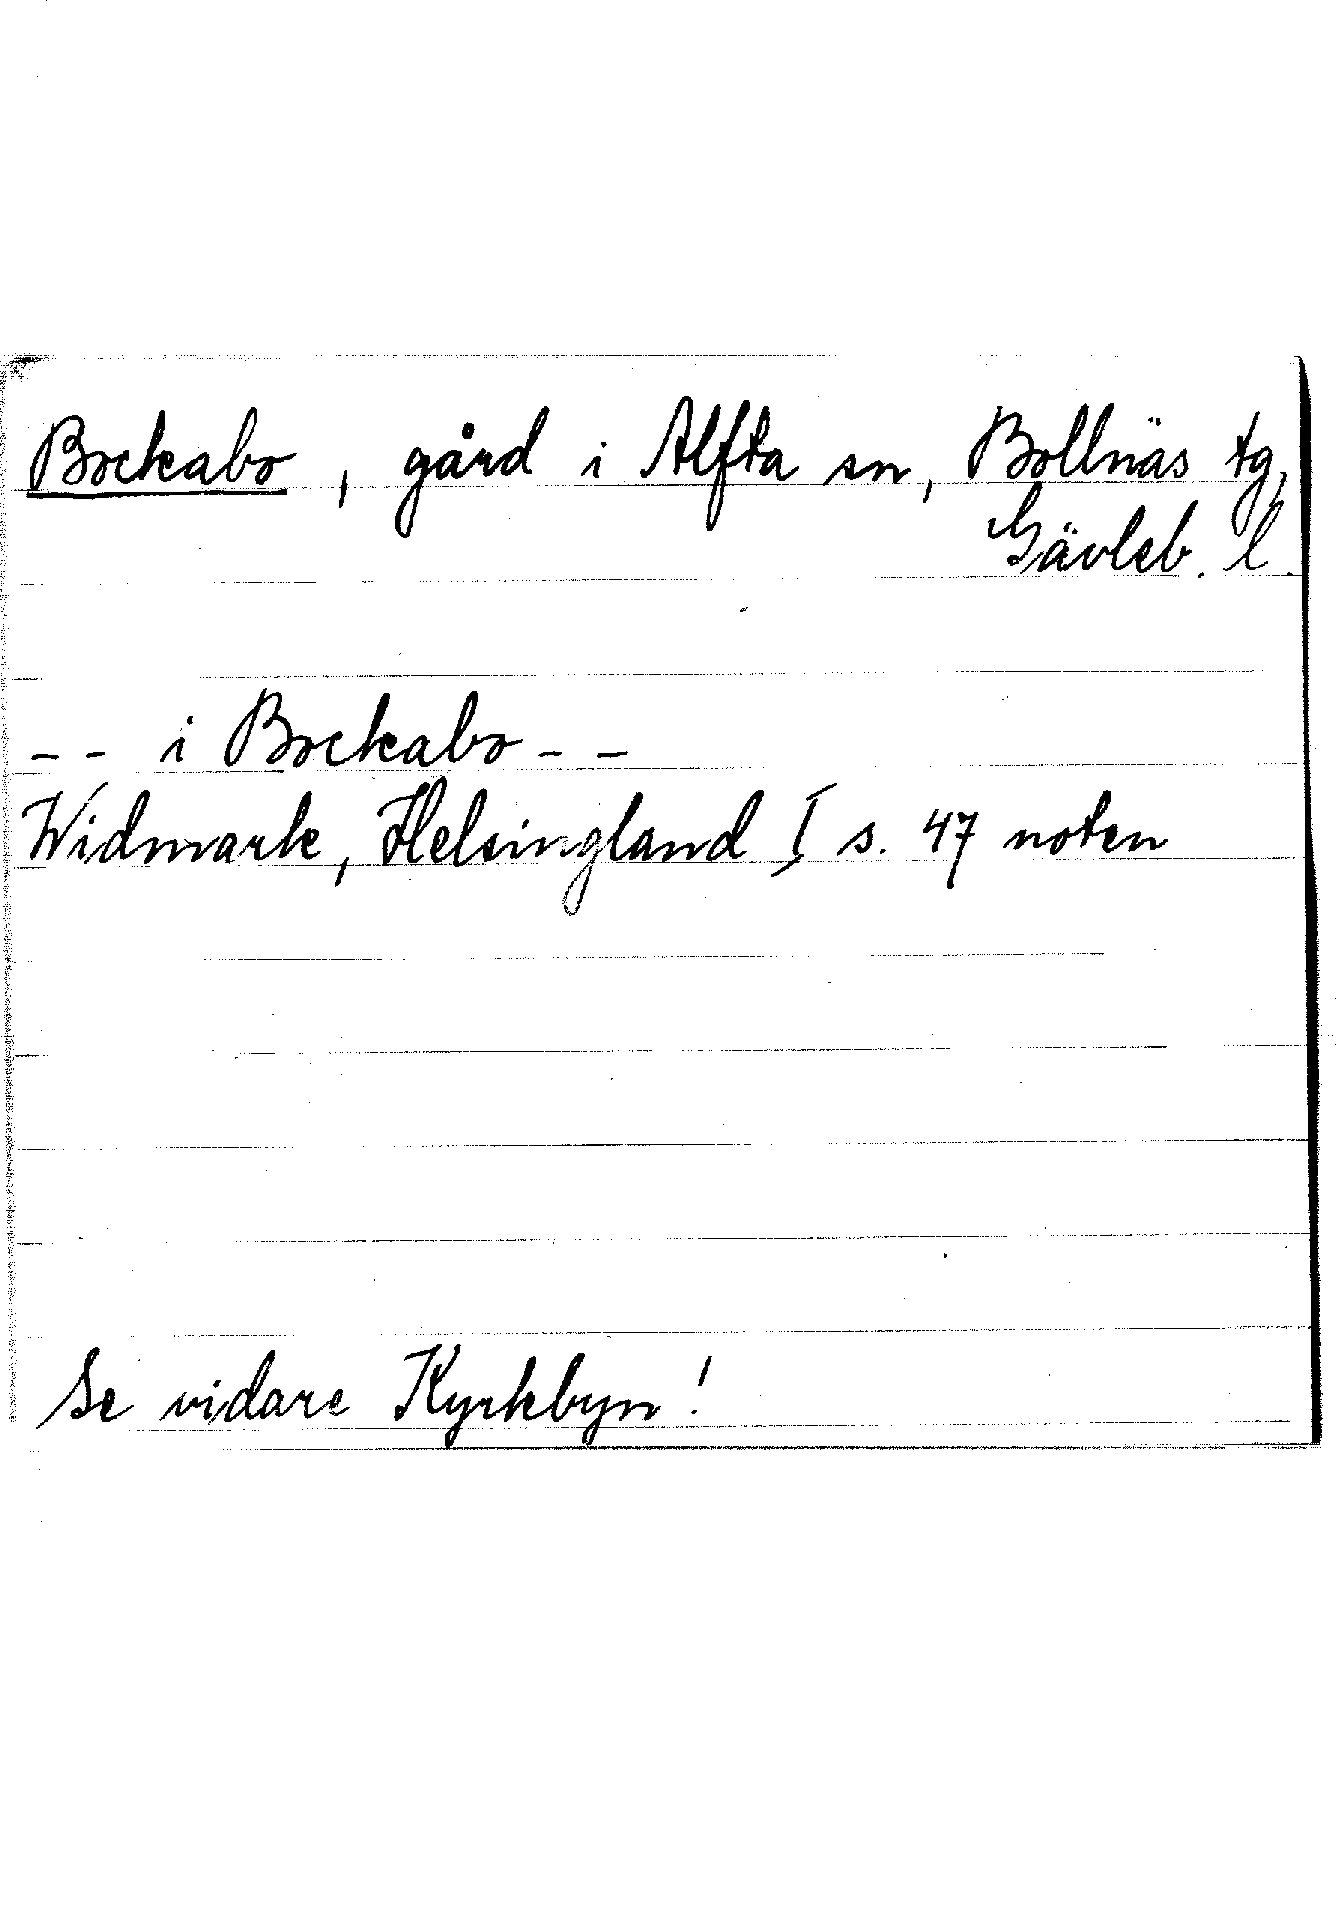 Bockabo, gård i Alfta sn, Bollnäs tg,
Gävleb. l.
-- i Bockabo --
Widmark, Helsingland I s. 47 noten
Se vidare Kyrkbyn!